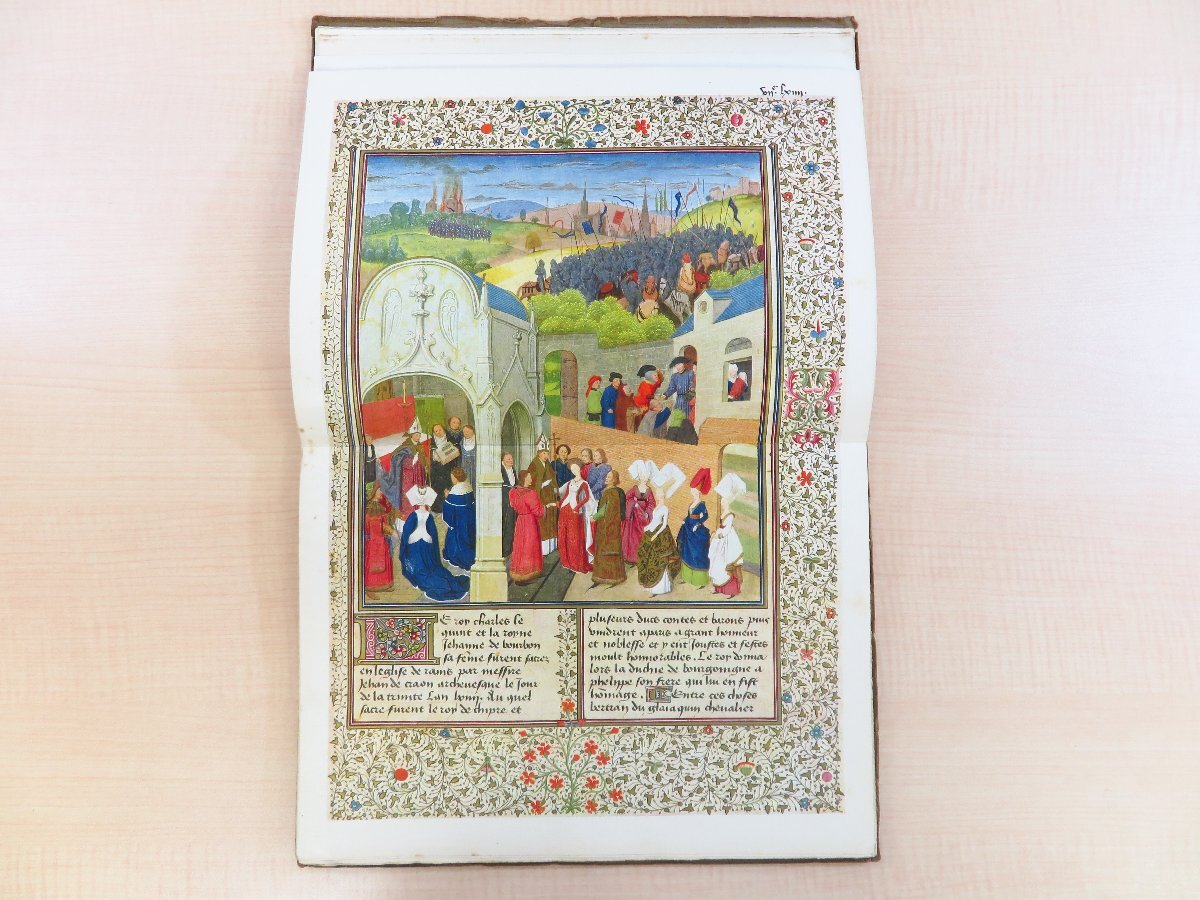 vijᶜ lxiiij.
Le roy charles le
quint et la royne
Jehanne de bourbon
sa fēme furent sacrez
en leglise de rains par messire
Jehan de craon archeuesque le Jour
de la trinite Lan lxiiij. Au quel
sacre furent le roy de chipre et
pluseurs ducz contes et barons puis
vindrent a paris a grant honneur
et noblesse et y eut Joustes et festes
moult honnorables. Le roy donna
lors la duchie de bourgoingne a
phelippe son frere qui lui en fist
hōmage. Entre ces choses
bertran du glaiaquin cheualier